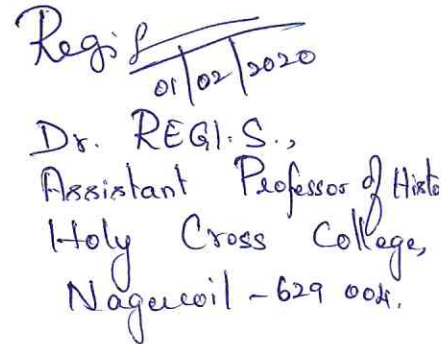 Regi S
01/02/2020
Dr. REGI. S.,
Assistant Professor of Histo
Holy Cross College,
Nagercoil - 629 004.